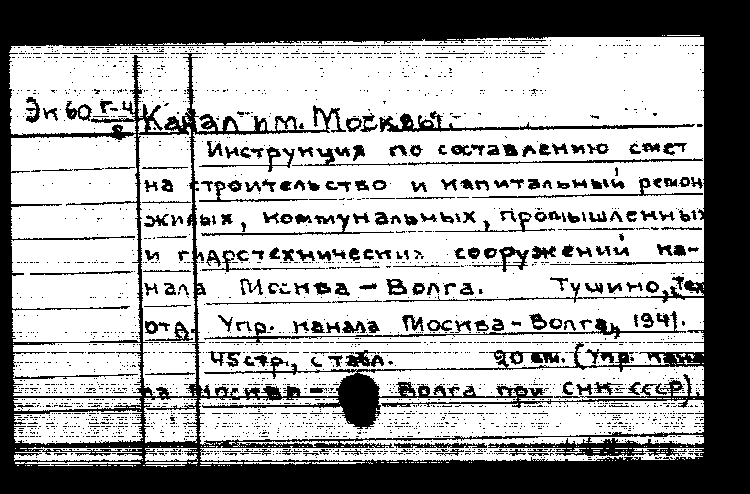 Эк 60 Г-4
8
Канал им. Москвы.
Инструкция по составлению смет
на строительство и капитальный ремон
жилых, коммунальных, промышленных
и гидротехнических сооружений ка-
нала Москва - Волга. Тушино, Тех
отд. Упр. канала Москва-Волга, 1941.
45 стр., с табл. 20 см. (Упр. кана
ла Москва - Волга при СНК СССР).